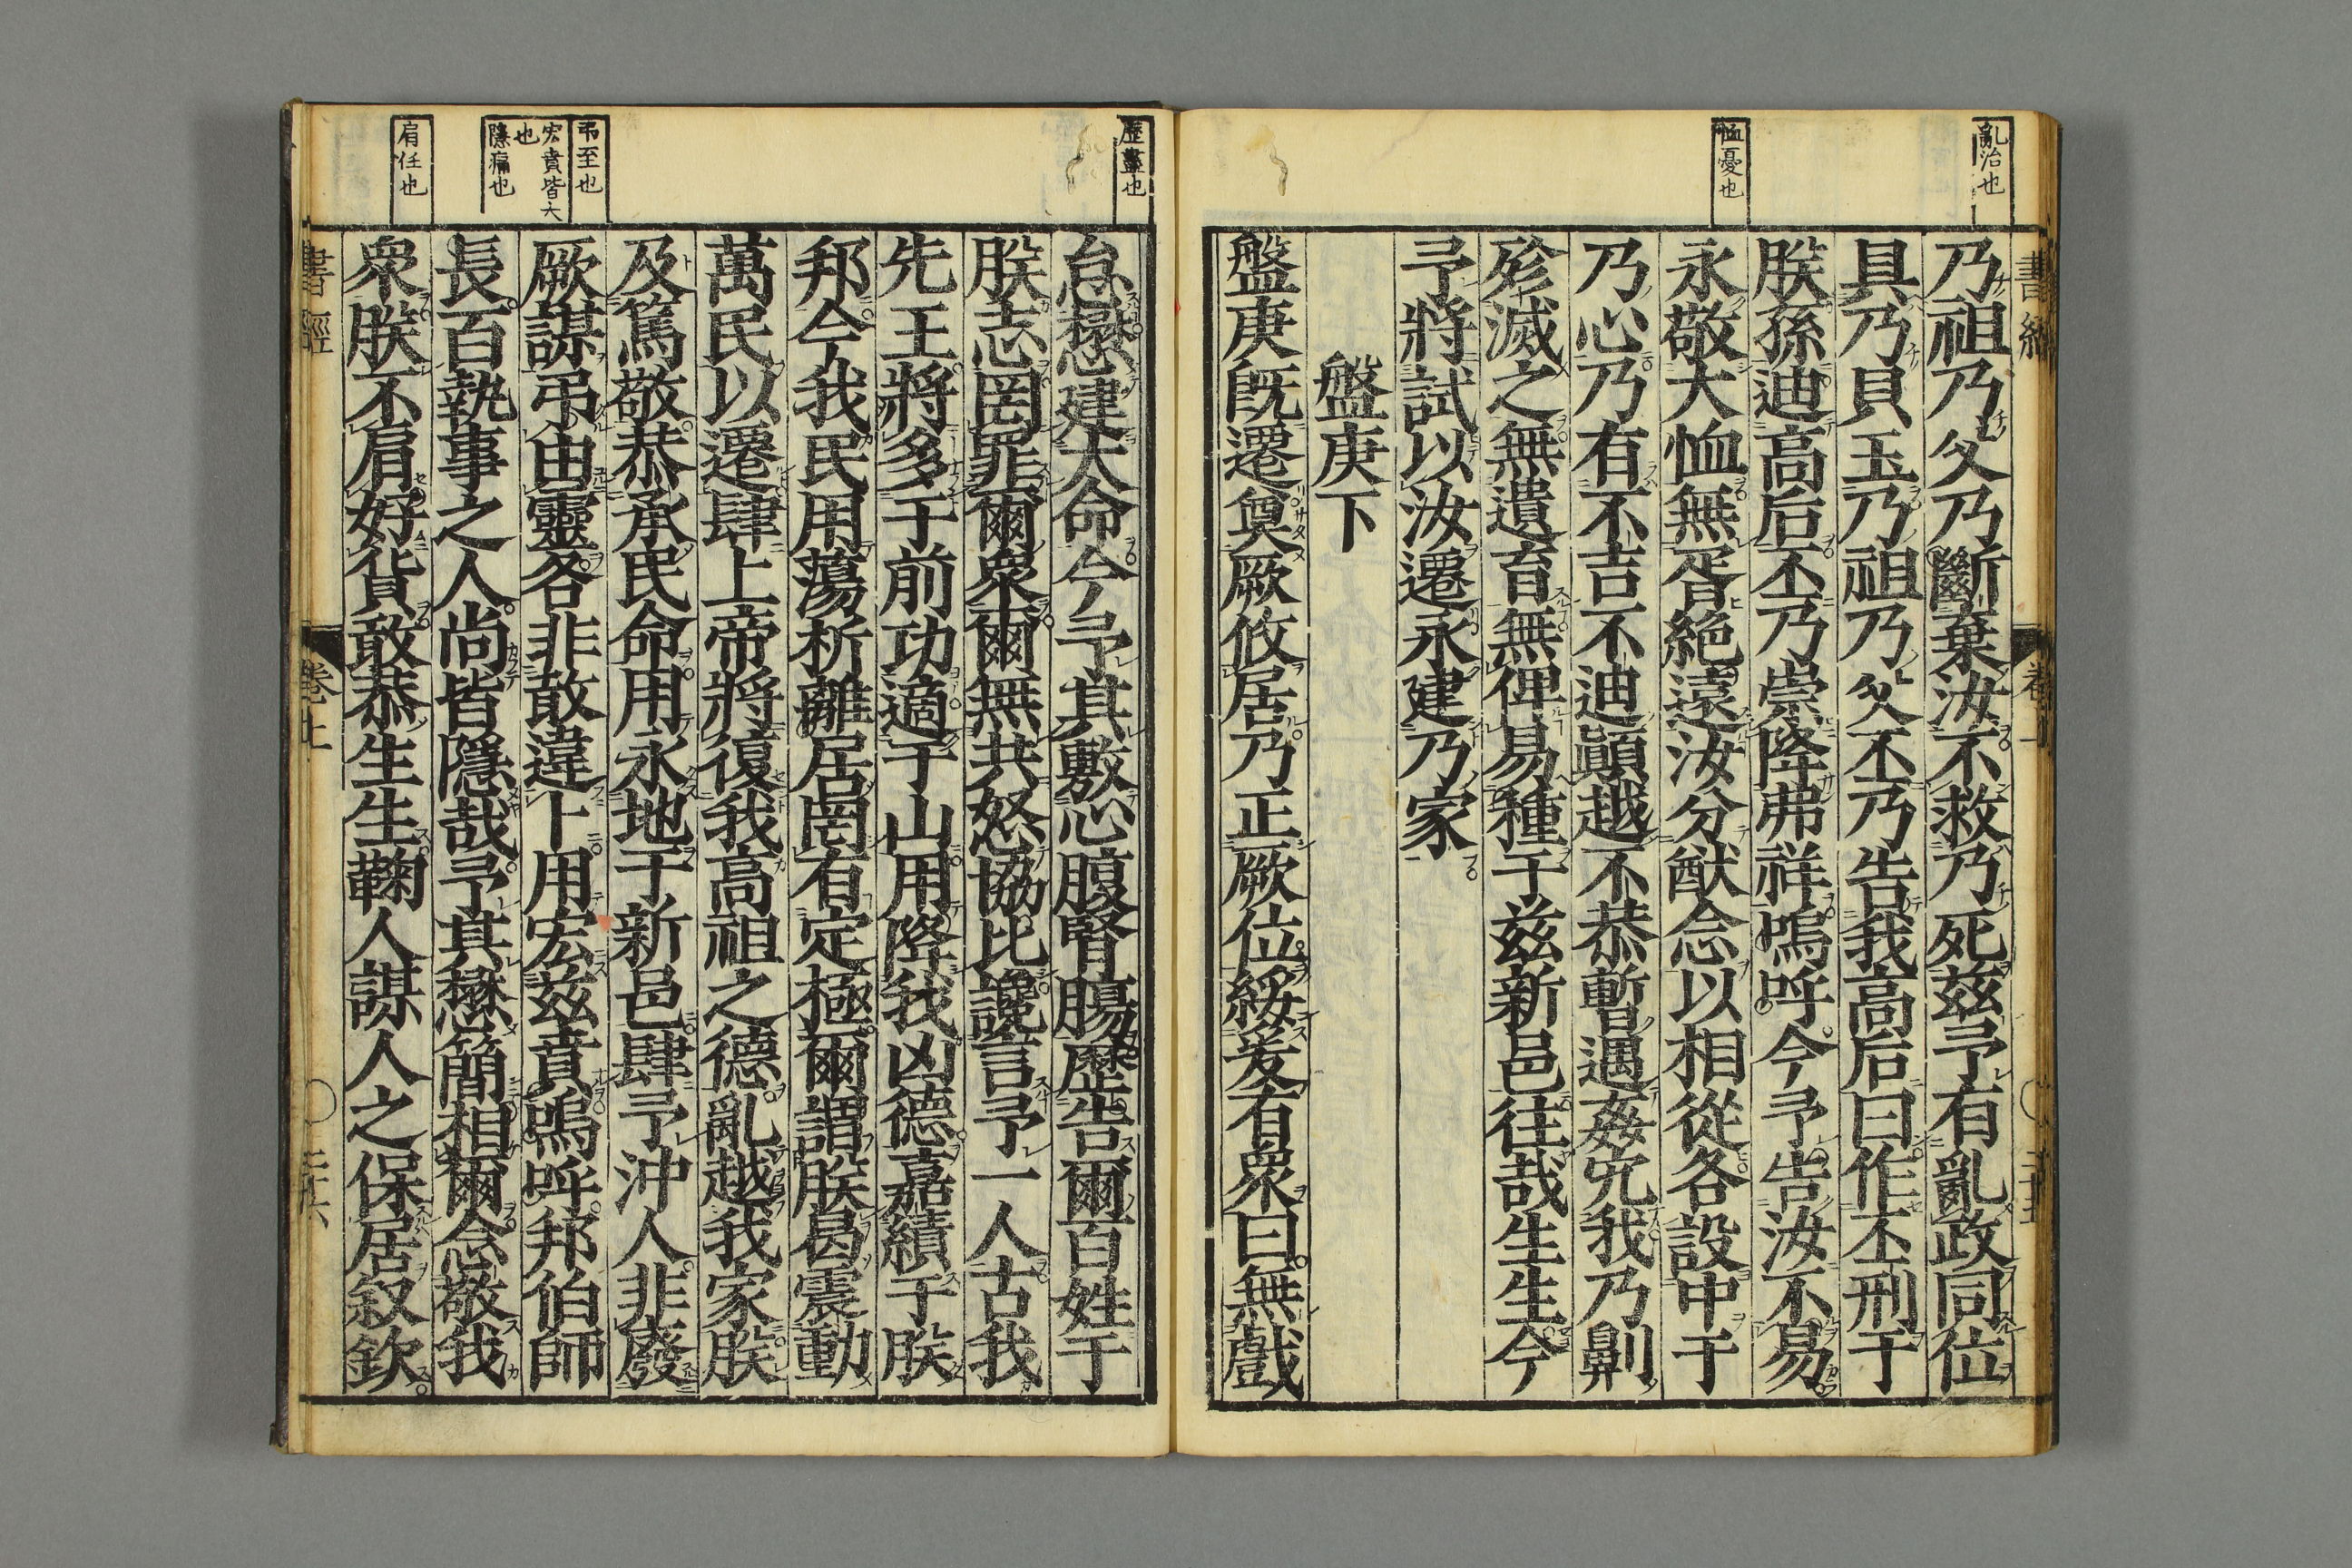 亂治也
恤憂也
乃祖乃父乃斷棄汝不救乃死茲予有亂政同位
具乃貝玉乃祖乃父丕乃告我高后曰作丕刑于
朕孫迪高后丕乃崇降弗祥嗚呼今予告汝不易
永敬大恤無胥絶遠汝分猷念以相從各設中于
乃心乃有不吉不迪顚越不恭暫遇姦宄我乃劓
殄滅之無遺育無俾易種于茲新邑往哉生生今
予將試以汝遷永建乃家
盤庚下
盤庚旣遷奠厥攸居乃正厥位綏爰有衆曰無戲
歷盡也
弔至也
宏賁皆大
也
隱痛也
肩任也
怠懋建大命今予其敷心腹腎腸歷告爾百姓于
朕志罔罪爾衆爾無共怒協比讒言予一人古我
先王將多于前功適于山用降我凶德嘉績于朕
邦今我民用蕩析離居罔有定極爾謂朕曷震動
萬民以遷肆上帝將復我高祖之德亂越我家朕
及篤敬恭承民命用永地于新邑肆予沖人非廢
厥謀弔由靈各非敢違卜用宏茲賁嗚呼邦伯師
長百執事之人尚皆隱哉予其懋簡相爾念敬我
衆朕不肩好貨敢恭生生鞠人謀人之保居叙欽
書經